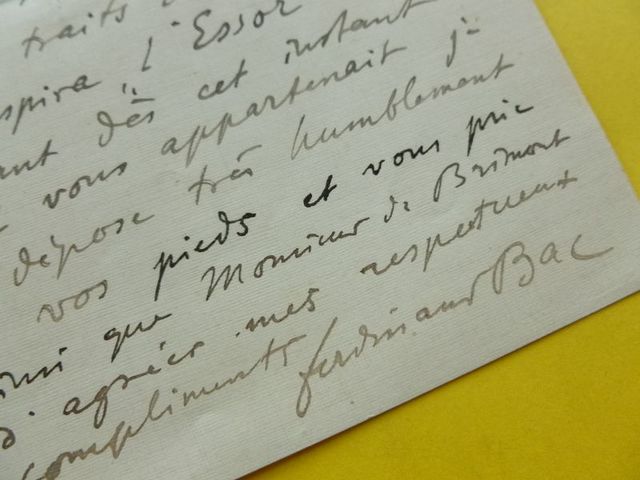 traits
spira "l'Essor
ant dès cet instant
vous appartenait je
dépose très humblement
vos pieds et vous prie
insi que Monsieur de Brimont
d'agréer mes respectueux
compliments
ferdinand Bac